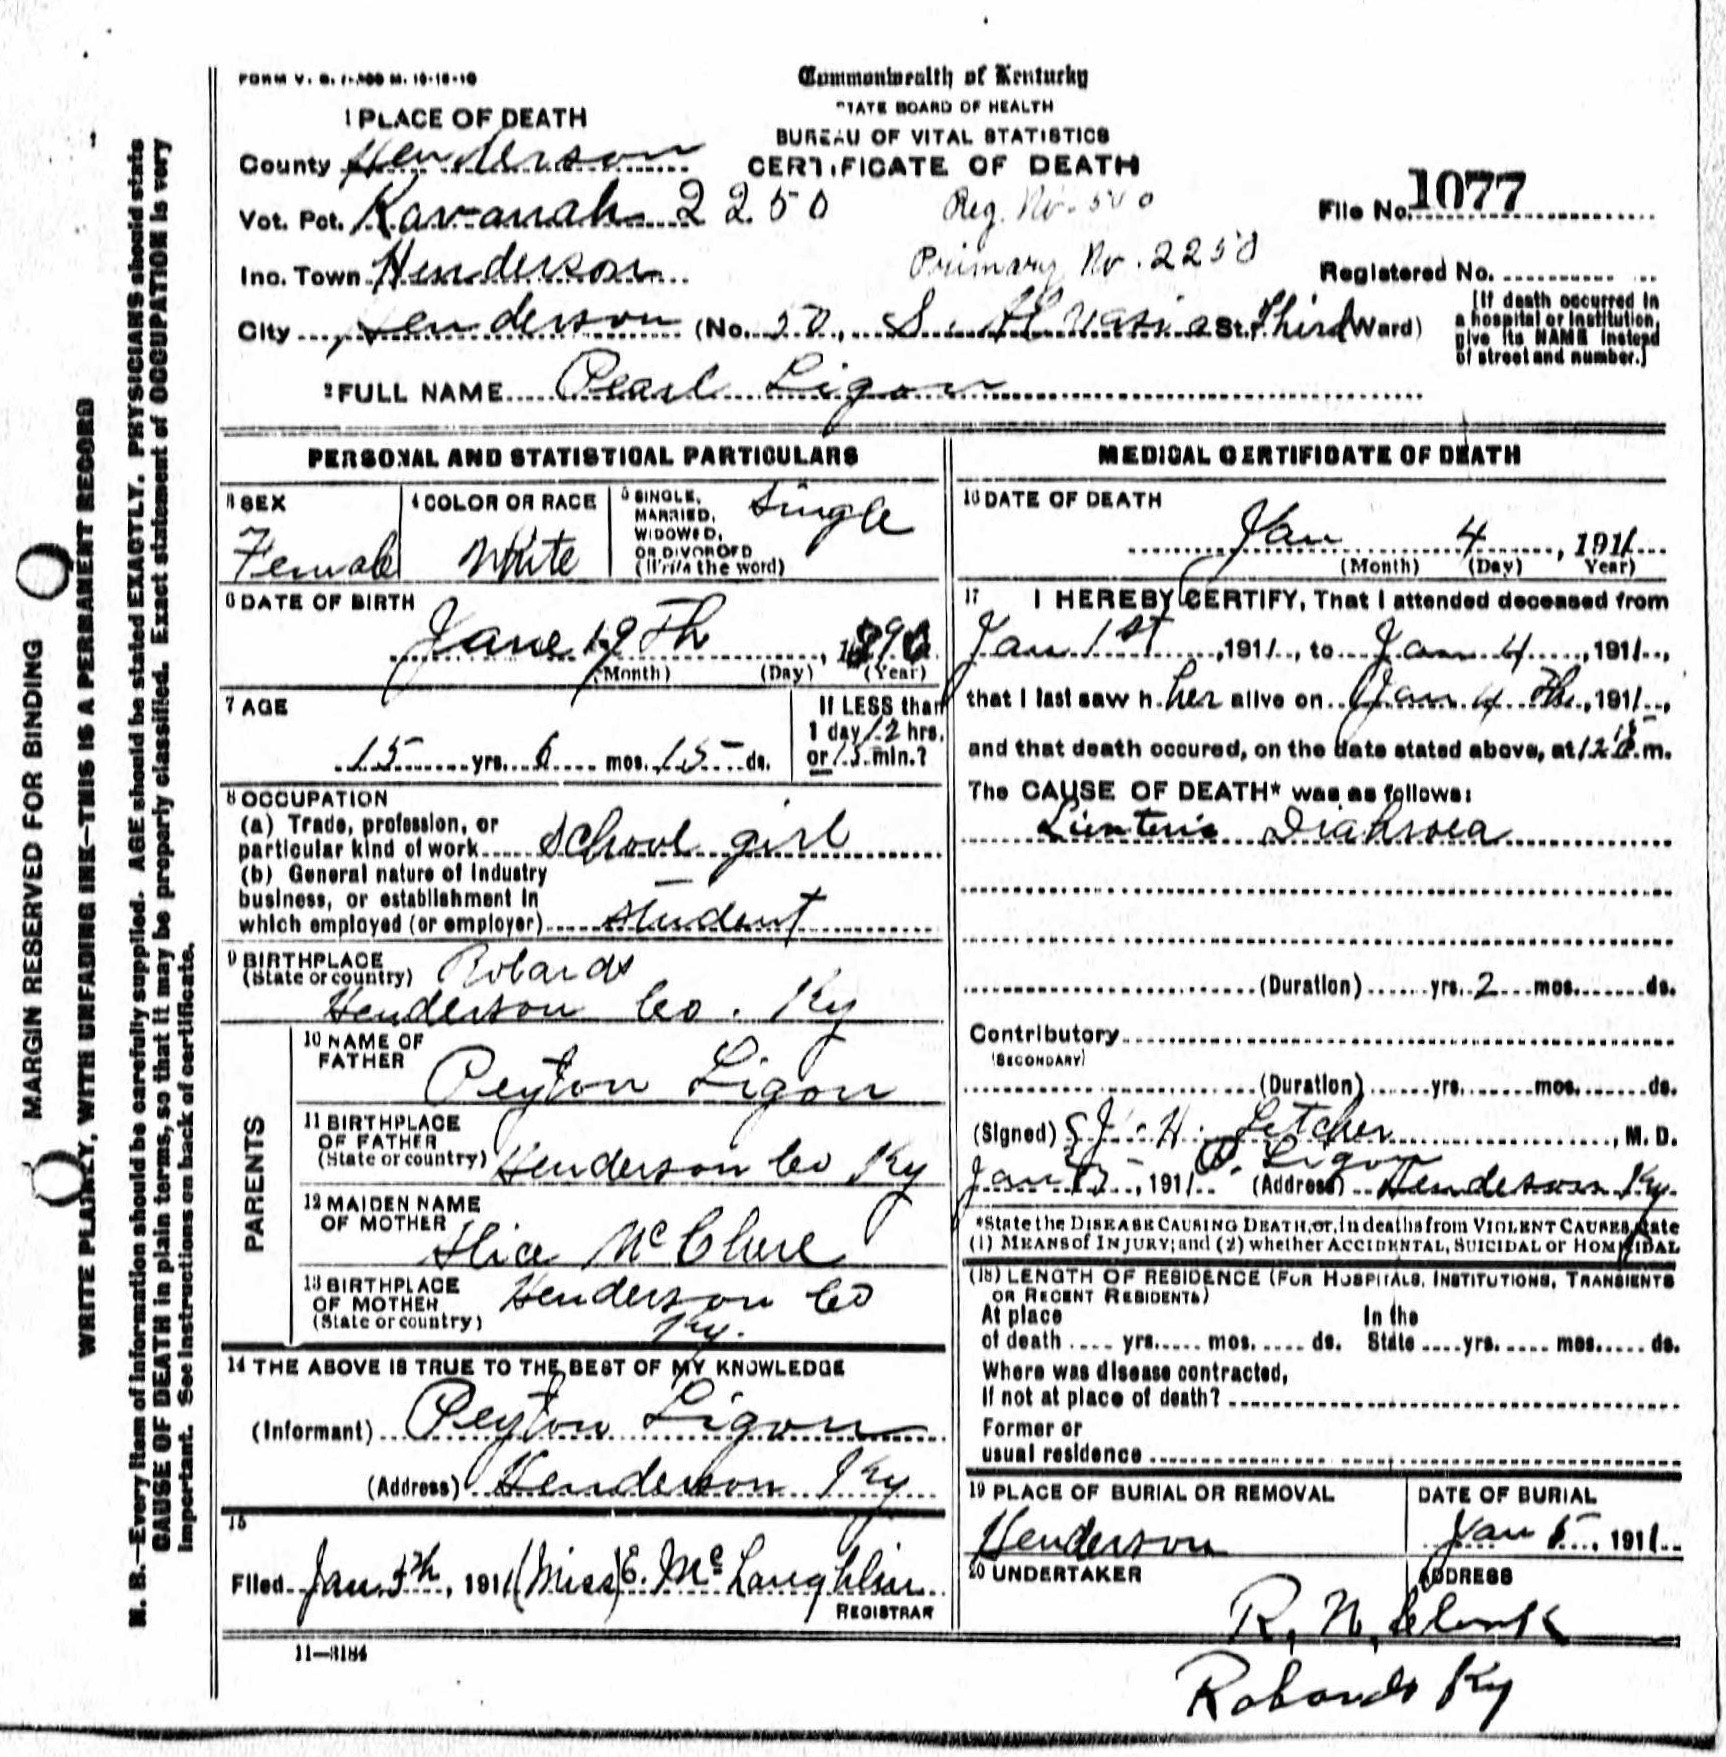 FORM V. S. 1-300 M. 10-18-10
Commonwealth of Kentucky
STATE BOARD OF HEALTH
BUREAU OF VITAL STATISTICS
CERTIFICATE OF DEATH
1 PLACE OF DEATH
County Henderson
Vot. Pct. Kavanah 2250
Reg. No. 500
File No. 1077
Inc. Town Henderson
Primary No. 2250
Registered No.
City Henderson (No. 50, S. St. Third Ward)
[If death occurred in
a hospital or institution,
give its NAME instead
of street and number.]
2 FULL NAME Pearl Ligon
PERSONAL AND STATISTICAL PARTICULARS
3 SEX
Female
4 COLOR OR RACE
White
5 SINGLE,
MARRIED,
WIDOWED,
OR DIVORCED
(Write the word)
Single
6 DATE OF BIRTH
June 19th, 1896
(Month) (Day) (Year)
7 AGE
15 yrs. 6 mos. 15 ds.
If LESS than
1 day 12 hrs.
or 15 min.?
8 OCCUPATION
(a) Trade, profession, or
particular kind of work School girl
(b) General nature of Industry
business, or establishment in
which employed (or employer) student
9 BIRTHPLACE
(State or country) Robards
Henderson Co. Ky
PARENTS
10 NAME OF
FATHER
Peyton Ligon
11 BIRTHPLACE
OF FATHER
(State or country) Henderson Co Ky
12 MAIDEN NAME
OF MOTHER
Alice McClure
13 BIRTHPLACE
OF MOTHER
(State or country)
Henderson Co
Ky.
14 THE ABOVE IS TRUE TO THE BEST OF MY KNOWLEDGE
(Informant) Peyton Ligon
(Address) Henderson Ky
15
Filed Jan. 5th, 1911 (Miss) E. McLaughlin
REGISTRAR
11—3184
MEDICAL CERTIFICATE OF DEATH
16 DATE OF DEATH
Jan 4, 1911
(Month) (Day) Year)
17 I HEREBY CERTIFY, That I attended deceased from
Jan 1st, 1911, to Jan 4, 1911,
that I last saw h er alive on Jan 4 Th, 1911,
and that death occured, on the date stated above, at 12 15 m.
The CAUSE OF DEATH* was as follows:
Lienteric
(Duration) yrs. 2 mos. ds.
Contributory
(SECONDARY)
(Duration) yrs. mos. ds.
(Signed) J. H. Letcher, M. D.
P. Ligon
Jan 5, 1911 (Address) Henderson Ky.
*State the DISEASE CAUSING DEATH, or, in deaths from VIOLENT CAUSES, state
(1) MEANS of INJURY; and (2) whether ACCIDENTAL, SUICIDAL or HOMICIDAL
(18) LENGTH OF RESIDENCE (FOR HOSPITALS, INSTITUTIONS, TRANSIENTS
OR RECENT RESIDENTS)
At place In the
of death yrs. mos. ds. State yrs. mos. ds.
Where was disease contracted,
If not at place of death?
Former or
usual residence
19 PLACE OF BURIAL OR REMOVAL
Henderson
DATE OF BURIAL
Jan 5, 1911
20 UNDERTAKER
ADDRESS
R. N.
Robards Ky
MARGIN RESERVED FOR BINDING
WRITE PLAINLY, WITH UNFADING INK—THIS IS A PERMANENT RECORD
N. B.—Every item of information should be carefully supplied. AGE should be stated EXACTLY. PHYSICIANS should state
CAUSE OF DEATH in plain terms, so that it may be properly classified. Exact statement of OCCUPATION is very
important. See instructions on back of certificate.